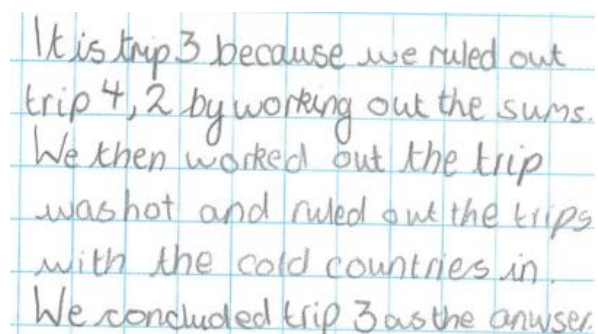 It is trip 3 because we ruled out
trip 4, 2 by working out the sums.
We then worked out the trip
was hot and ruled out the trips
with the cold countries in.
We concluded trip 3 as the anwser.